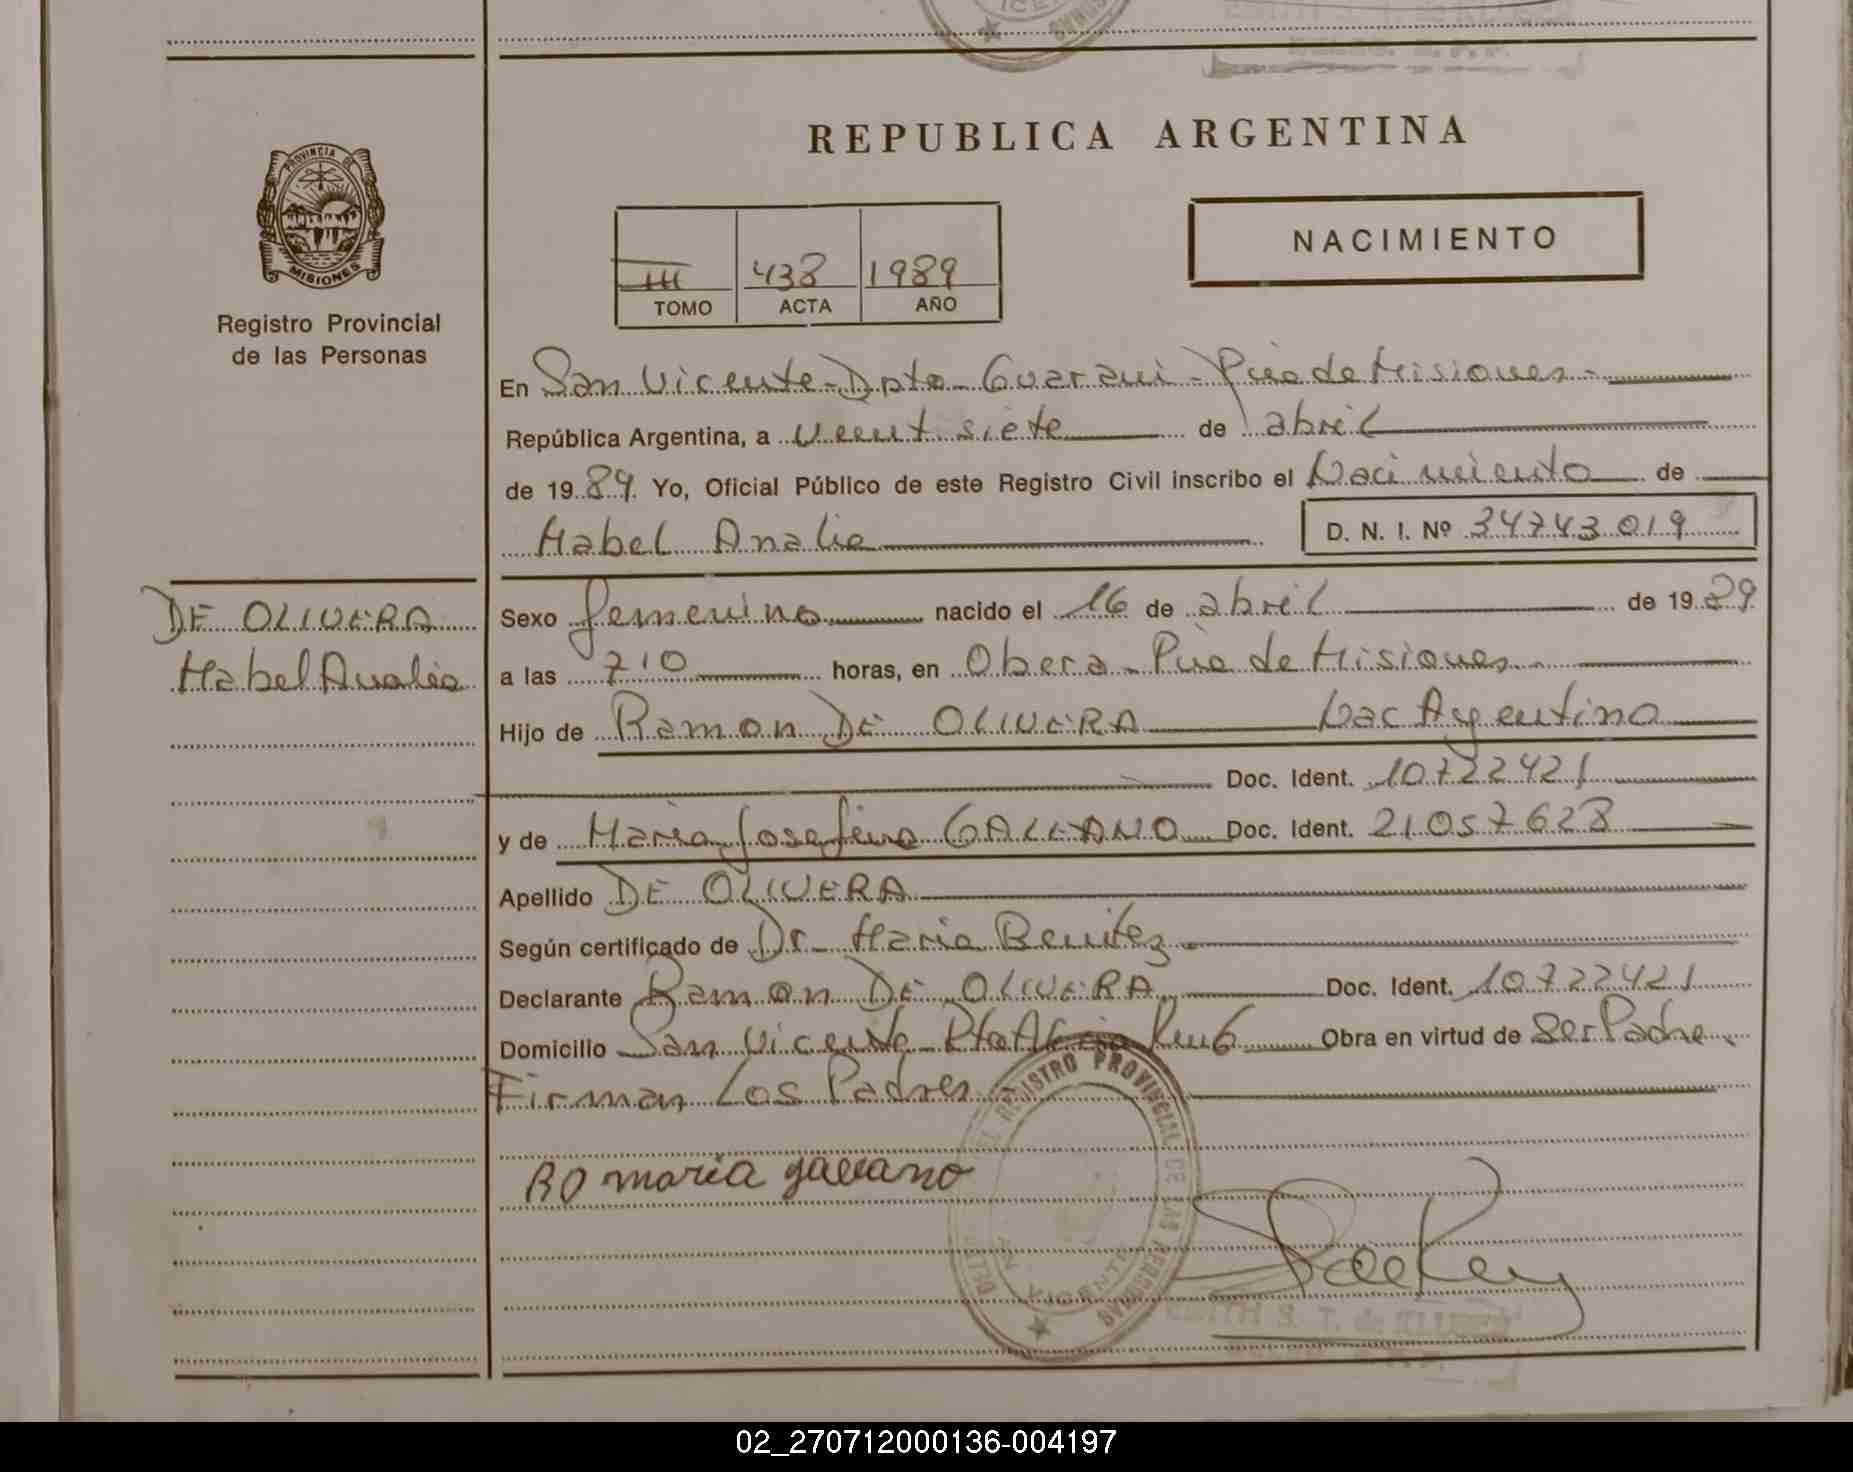 REPUBLICA ARGENTINA
PROVINCIA DE
MISIONES
Registro Provincial
de las Personas
III 438 1989
TOMO ACTA AÑO
NACIMIENTO
En San Vicente - Dpto - Guarani - Pcia de Misiones -
República Argentina, a veentisiete de abril
de 1989. Yo, Oficial Público de este Registro Civil inscribo el Nacimiento de
Mabel Analia D. N. I. Nº 34743019
DE OLIVERA
Mabel Analia
Sexo femenino nacido el 16 de abril de 1989
a las 710 horas, en Obera - Pcia de Misiones
Hijo de Ramon DE OLIVERA Nac Argentino
Doc. Ident. 10722421
y de Maria Josefina GALEANO Doc. Ident. 21057628
Apellido DE OLIVERA
Según certificado de Dr - Maria Benitez
Declarante Ramon DE OLIVERA Doc. Ident. 10722421
Domicilio San Vicente - Obra en virtud de Ser Padre
Firman Los Padres
RO maria galeano
REGISTRO PROVINCIAL DE LAS PERSONAS
VICENTE
EDITH S. T. de
02_270712000136-004197